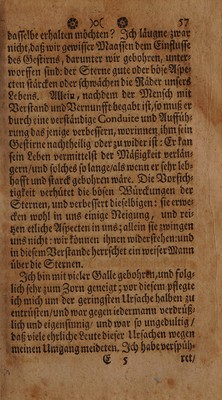 57
dasselbe erhalten möchten? Ich läugne zwar
nicht, daß wir gewisser Maassen dem Einflusse
des Gestirns, darunter wir gebohren, unter-
worffen sind: der Sterne gute oder böse Aspe-
cten stärcken oder schwächen die Räder unsers
Lebens. Allein, nachdem der Mensch mit
Verstand und Vernunfft begabt ist, so muß er
durch eine verständige Conduite und Auffüh-
rung das jenige verbessern, worinnen ihm sein
Gestirne nachtheilig oder zu wider ist: Er kan
sein Leben vermittelst der Mäßigkeit verlän-
gern/ und solches so lange/ als wenn er sehr leb-
hafft und starck gebohren wäre. Die Vorsich-
tigkeit verhütet die bösen Würckungen der
Sternen, und verbessert dieselbigen: sie erwe-
cken wohl in uns einige Neigung, und rei-
tzen etliche Aspecten in uns; allein sie zwingen
uns nicht: wir können ihnen widerstehen: und
in diesem Verstande herrschet ein weiser Mann
über die Sternen.
Ich bin mit vieler Galle gebohren, und folg-
lich sehr zum Zorn geneigt; vor diesem pflegte
ich mich um der geringsten Ursache halben zu
entrüsten/ und war gegen iedermann verdrüß-
lich und eigensinnig/ und war so ungedultig/
daß viele ehrliche Leute dieser Ursachen wegen
meinen Umgang meideten. Ich habe verspüh-
E 5 ret/